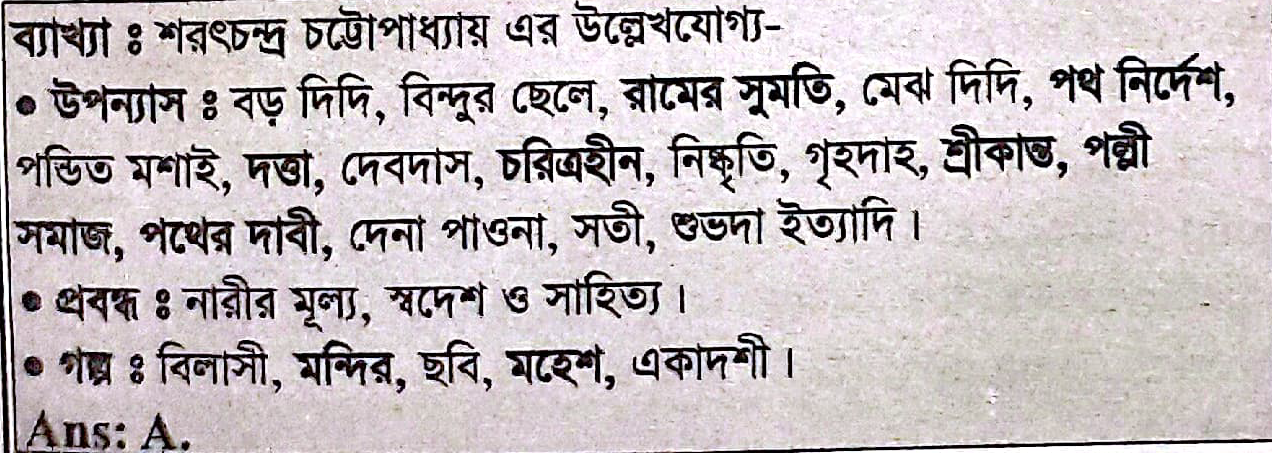 ব্যাখ্যা ঃ শরৎচন্দ্র চট্টোপাধ্যায় এর উল্লেখযোগ্য-
● উপন্যাস ঃ বড় দিদি, বিন্দুর ছেলে, রামের সুমতি, মেঝ দিদি, পথ নির্দেশ,
পন্ডিত মশাই, দত্তা, দেবদাস, চরিত্রহীন, নিষ্কৃতি, গৃহদাহ, শ্রীকান্ত, পল্লী
সমাজ, পথের দাবী, দেনা পাওনা, সতী, শুভদা ইত্যাদি।
● প্রবন্ধ ঃ নারীর মূল্য, স্বদেশ ও সাহিত্য।
● গল্প ঃ বিলাসী, মন্দির, ছবি, মহেশ, একাদশী।
Ans: A.